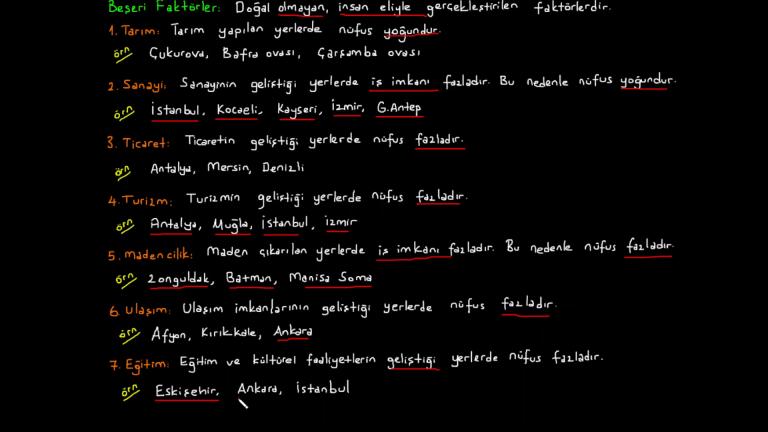 Beşeri Faktörler: Doğal olmayan, insan eliyle gerçekleştirilen faktörlerdir.
1. Tarım: Tarım yapılan yerlerde nüfus yoğundur.
örn Çukurova, Bafra ovası, Çarşamba ovası
2. Sanayi: Sanayinin geliştiği yerlerde iş imkanı fazladır. Bu nedenle nüfus yoğundur.
örn İstanbul, Kocaeli, Kayseri, İzmir, G.Antep
3. Ticaret: Ticaretin geliştiği yerlerde nüfus fazladır.
örn Antalya, Mersin, Denizli
4. Turizm: Turizmin geliştiği yerlerde nüfus fazladır.
örn Antalya, Muğla, İstanbul, izmir
5. Maden cilik: Maden çıkarılan yerlerde iş imkanı fazladır. Bu nedenle nüfus fazladır.
örn Zonguldak, Batman, Manisa Soma
6. Ulaşım: Ulaşım imkanlarının geliştiği yerlerde nüfus fazladır.
örn Afyon, Kırıkkale, Ankara
7. Eğitim: Eğitim ve kültürel faaliyetlerin geliştiği yerlerde nüfus fazladır.
örn Eskişehir, Ankara, İstanbul